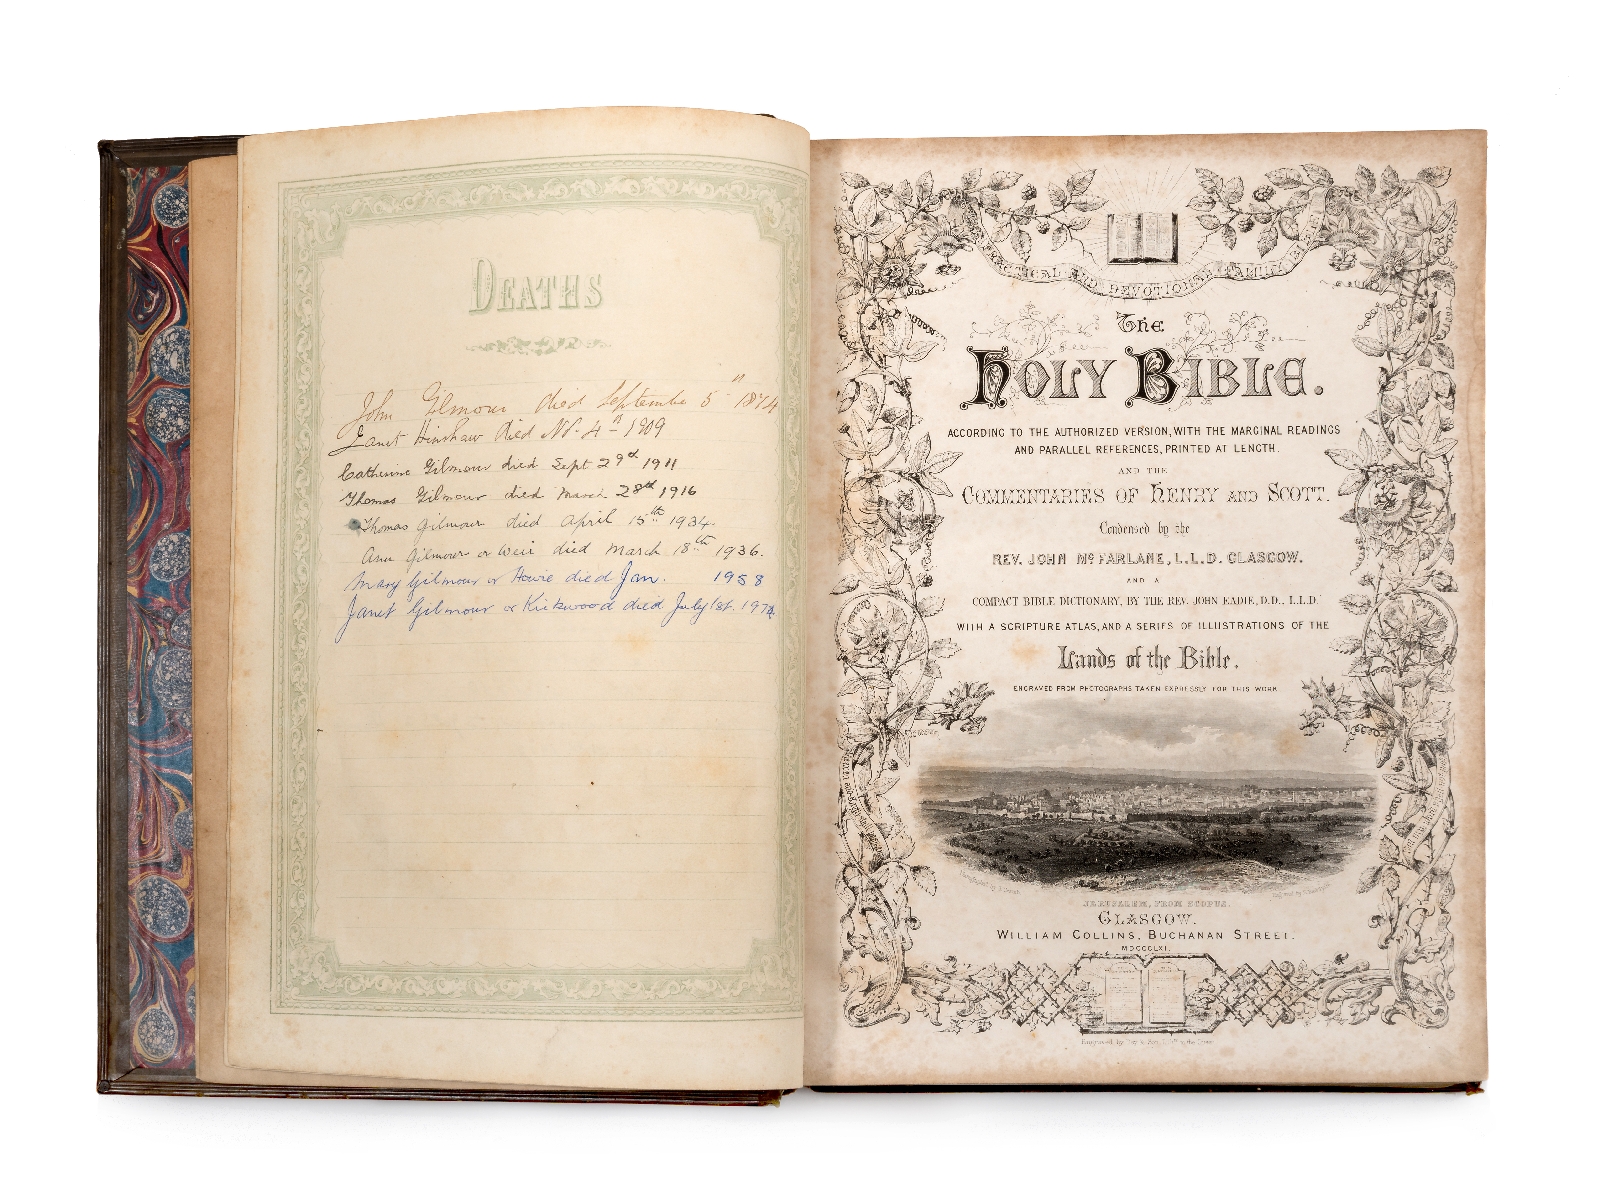 DEATHS
John Gilmour died September 5th 1874
Janet Hinshaw Died 4th 1909
Catherine Gilmour died Sept 29th 1911
Thomas Gilmour died March 28th 1916
Thomas Gilmour died April 15th 1934.
Ann Gilmour or Weir died March 18th 1936.
Mary Gilmour or Howie died Jan. 1958
Janet Gilmour or Kirkwood died July 1st. 197
PRACTICAL AND DEVOTIONAL FAMILY BIBLE
THE
HOLY BIBLE.
ACCORDING TO THE AUTHORIZED VERSION, WITH THE MARGINAL READINGS
AND PARALLEL REFERENCES, PRINTED AT LENGTH.
AND THE
COMMENTARIES OF HENRY AND SCOTT.
Condensed by the
REV. JOHN Mc FARLANE, L.L.D. GLASGOW.
AND A
COMPACT BIBLE DICTIONARY, BY THE REV. JOHN EADIE, D.D., L.L.D.
WITH A SCRIPTURE ATLAS, AND A SERIES OF ILLUSTRATIONS OF THE
Lands of the Bible.
ENGRAVED FROM PHOTOGRAPHS TAKEN EXPRESSLY FOR THIS WORK
JERUSALEM, FROM SCOPUS.
GLASGOW.
WILLIAM COLLINS, BUCHANAN STREET.
MDCCCLXI.
Engraved by